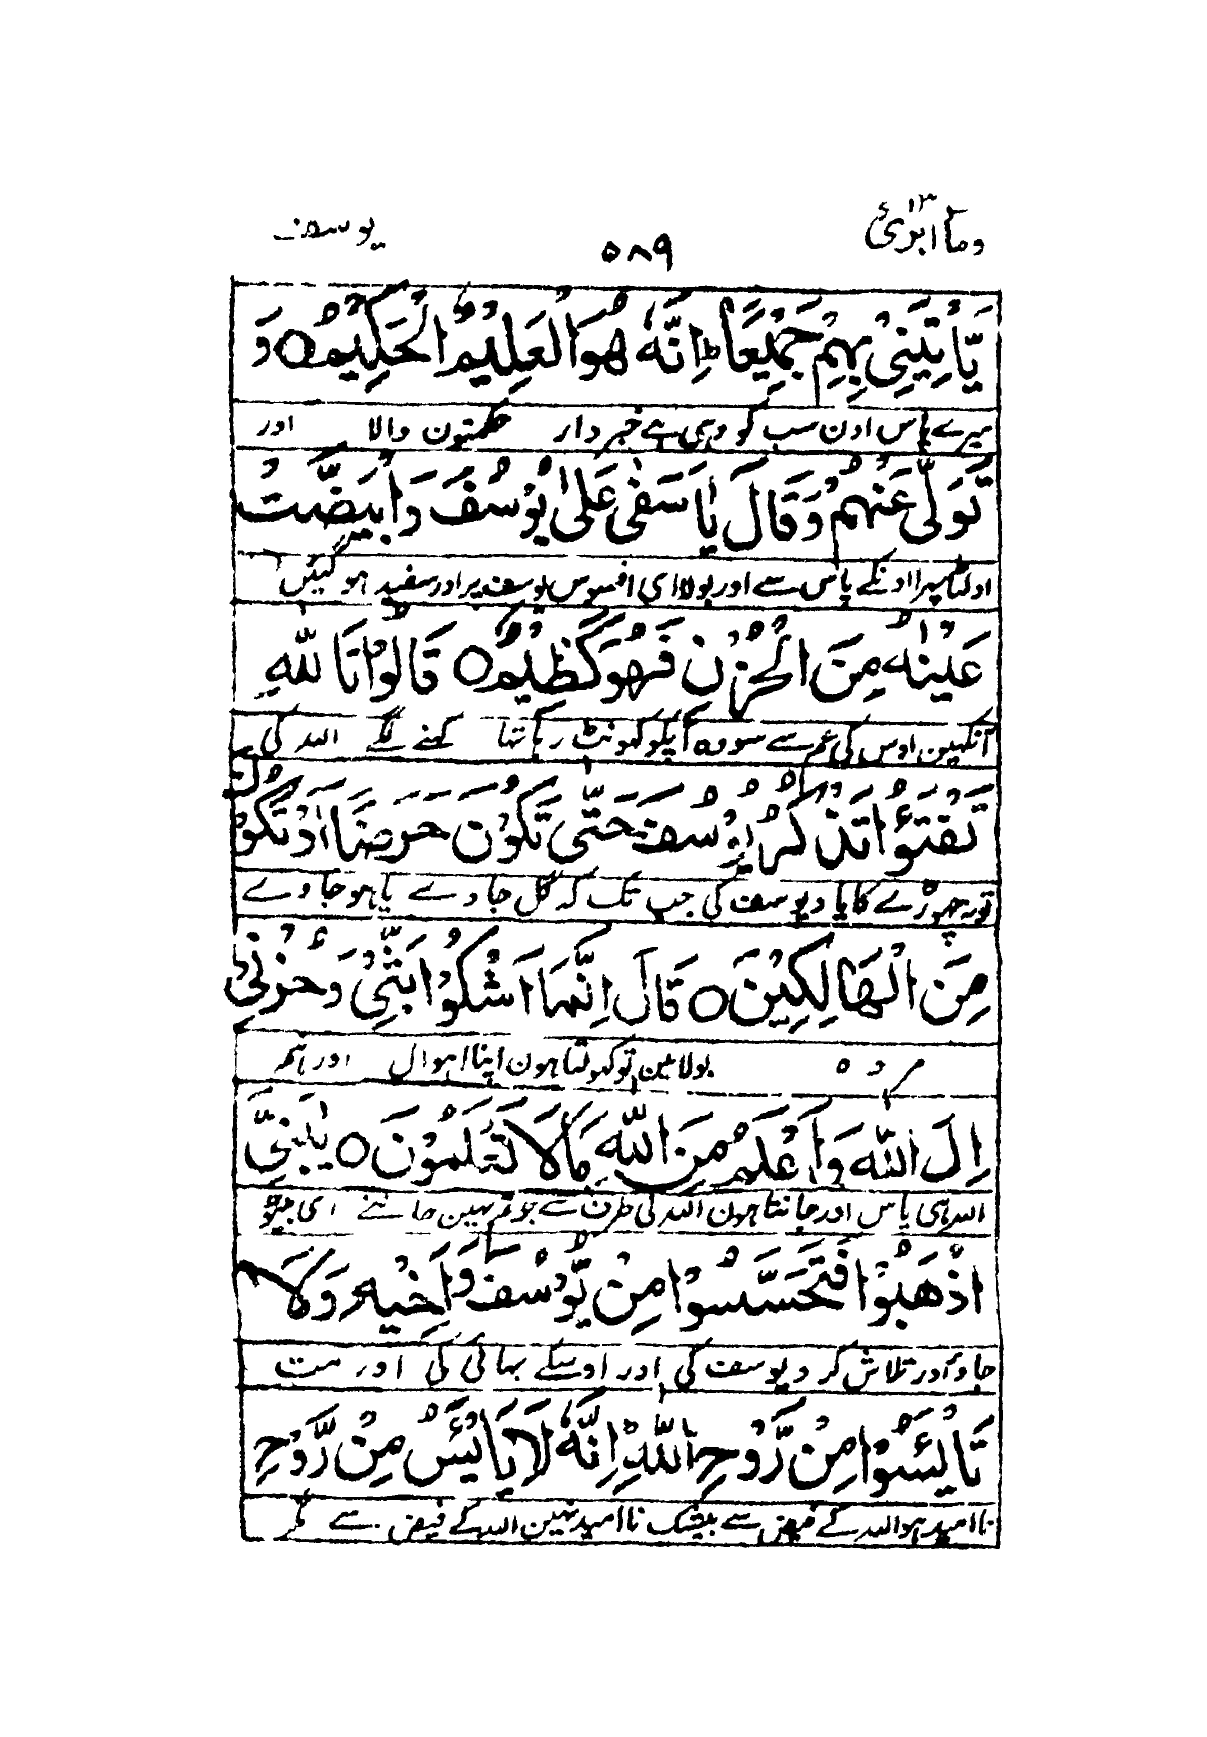 وماۤ ابرئ ١٣
٥٨٩
یوسف
یَّاْتِیَنِیْ بِهِمْ جَمِیْعًا ؕ اِنَّهٗ هُوَ الْعَلِیْمُ الْحَكِیْمُ ○ وَ
میرے پاس اون سب کو وہی ہے خبردار حکمتون والا اور
تَوَلّٰی عَنْهُمْ وَقَالَ یٰاَسَفٰی عَلٰی یُوْسُفَ وَابْیَضَّتْ
اولٹا پہرا اونکے پاس سے اور بولا ای افسوس یوسف پر اور سفید ہوگئیں
عَیْنٰهُ مِنَ الْحُزْنِ فَهُوَ كَظِیْمٌ ○ قَالُوْا تَا للّٰهِ
آنکہین اوس کی غم سے سو وہ آپکو کہونٹ رہا تہا کہنے لگے اللہ کی
تَفْتَؤُا تَذْكُرُ یُوْسُفَ حَتّٰی تَكُوْنَ حَرَضًا اَوْ تَكُوْنَ
تو نہ چہوڑے کا یاد یوسف کی جب تک کہ گل جاوے یا ہو جاوے
مِنَ الْهَالِكِیْنَ ○ قَالَ اِنَّمَا اَشْكُوْا بَثِّیْ وَحُزْنِیْ
مردہ بولا مین تو کہولتا ہون اپنا احوال اور غم
اِلَی اللّٰهِ وَاَعْلَمُ مِنَ اللّٰهِ مَا لَا تَعْلَمُوْنَ ○ یٰبَنِیَّ
اللہ ہی پاس اور جانتا ہون اللہ کی طرف سے جو تم نہین جانتے ای بیٹو
اذْهَبُوْا فَتَحَسَّسُوْا مِنْ یُّوْسُفَ وَاَخِیْهِ وَلَا
جاؤ اور تلاش کرو یوسف کی اور اوسکے بہائی کی اور مت
تَایْئَسُوْا مِنْ رَّوْحِ اللّٰهِ ؕ اِنَّهٗ لَا یَایْئَسُ مِنْ رَّوْحِ
نا امید ہو اللہ کے فیض سے بیشک نا امید نہین اللہ کے فیض سے مگر